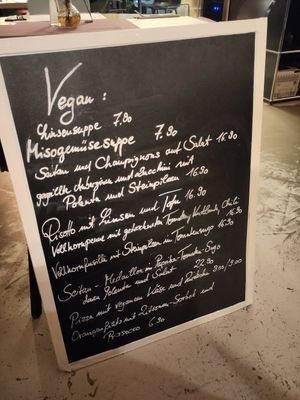 Vegan:
Linsensuppe 7.90
Misogemüsesuppe 7.90
Seitan und Champignons auf Salat 16.90
gegrillte Auberginen und Zucchini mit
Polenta und Steinpilzen 16.90
Risotto mit Linsen und Tofu 16.90
Vollkornpenne mit getrockneten Tomaten, Knoblauch, Chili 16.90
Vollkornfusilli mit Steinpilzen in Tomatensugo 16.90
Seitan-Medaillon in Paprika-Tomaten-Sugo
dazu Polenta und Salat 22.90
Pizza mit veganem Käse und
Orangenfilets mit Zitronen-Sorbet und
Prosecco 6.90